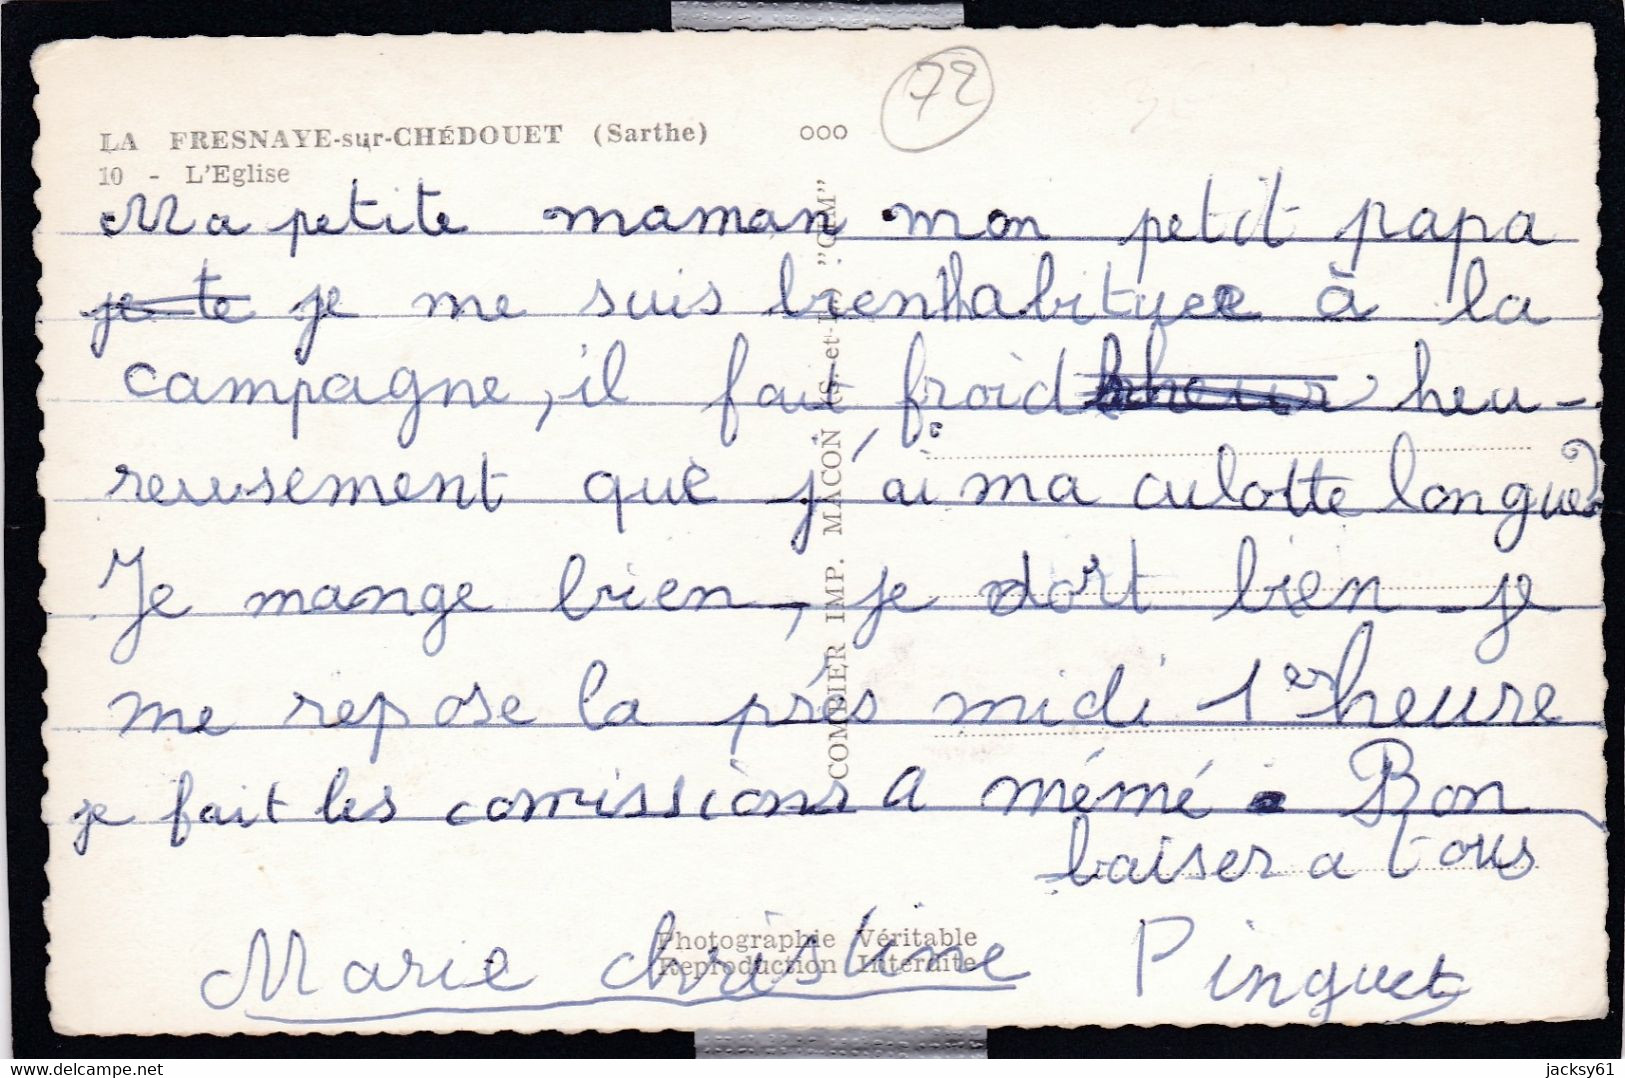 72
LA FRESNAYE-sur-CHÉDOUET (Sarthe) 000
10 - L'Eglise
Ma petite maman mon petit papa
je te je me suis bien habituer à la
campagne, il fait froid heu-
reusement que j'ai ma culotte longue
Je mange bien, je dort bien - je
me repose la près midi 1er heure
je fait les comissions a mémé. Bon
baiser a tous
Marie christine Pinguet
COMBIER IMP. MACON (S.-et-L.) "CIM"
Photographie Véritable
Reproduction Interdite
delcampe.net
jacksy61